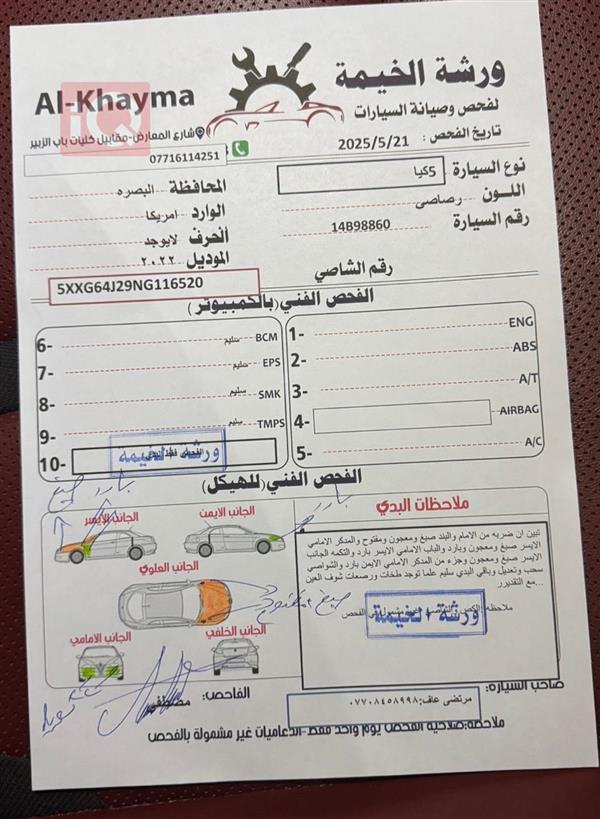 Al-Khayma
ورشة الخيمة
لفحص وصيانة السيارات
شارع المعارض-مقابيل كليات باب الزبير
07716114251
تاريخ الفحص : 2025/5/21
نوع السيارة 5كيا
المحافظة البصره
اللــون رصاصي
الوارد امريكا
رقم السيارة 14B98860
الحرف لايوجد
الموديل ٢٠٢٢
رقم الشاصي
5XXG64J29NG116520
الفحص الفني(بالكمبيوتر)
1- ENG
2- ABS
3- A/T
4- AIRBAG
5- A/C
6- سليم BCM
7- سليم EPS
8- سليم SMK
9- سليم TMPS
10-
ورشة الخيمة
الفحص الفني(للهيكل)
بارد صبغ
بارد
الجانب الايسر
الجانب الايمن
الجانب العلوي
صبغ مفتوح
الجانب الامامي
الجانب الخلفي
ملاحظات البدي
تبين ان ضربه من الامام والبند صبغ ومعجون ومفتوح والمدكر الامامي
الايسر صبغ ومعجون وبارد والباب الامامي الايسر بارد والتكمه الجانب
الايسر صبغ ومعجون وجزء من المدكر الامامي الايمن بارد والشواصي
سحب وتعديل وباقي البدي سليم علما توجد طخات ورصعات شوف العين
مع التقدير...
ملاحظه: الكص
مشمول في الفحص
ورشة الخيمة
صاحب السيارة:
مرتضى عاف:٠٧٧٠٨٤٥٨٩٩٨
الفاحص: مصطفى
ملاحظة:صلاحية الفحص يوم واحد فقط-الدعاميات غير مشمولة بالفحص